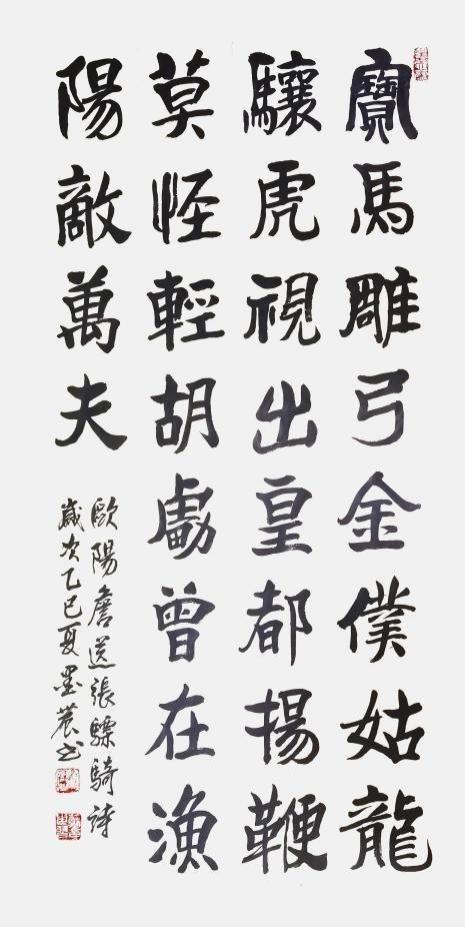 寶馬雕弓金僕姑龍
驤虎視出皇都揚鞭
莫怪輕胡虜曾在漁
陽敵萬夫
歐陽詹送張驃騎詩
歲次乙巳夏墨農书